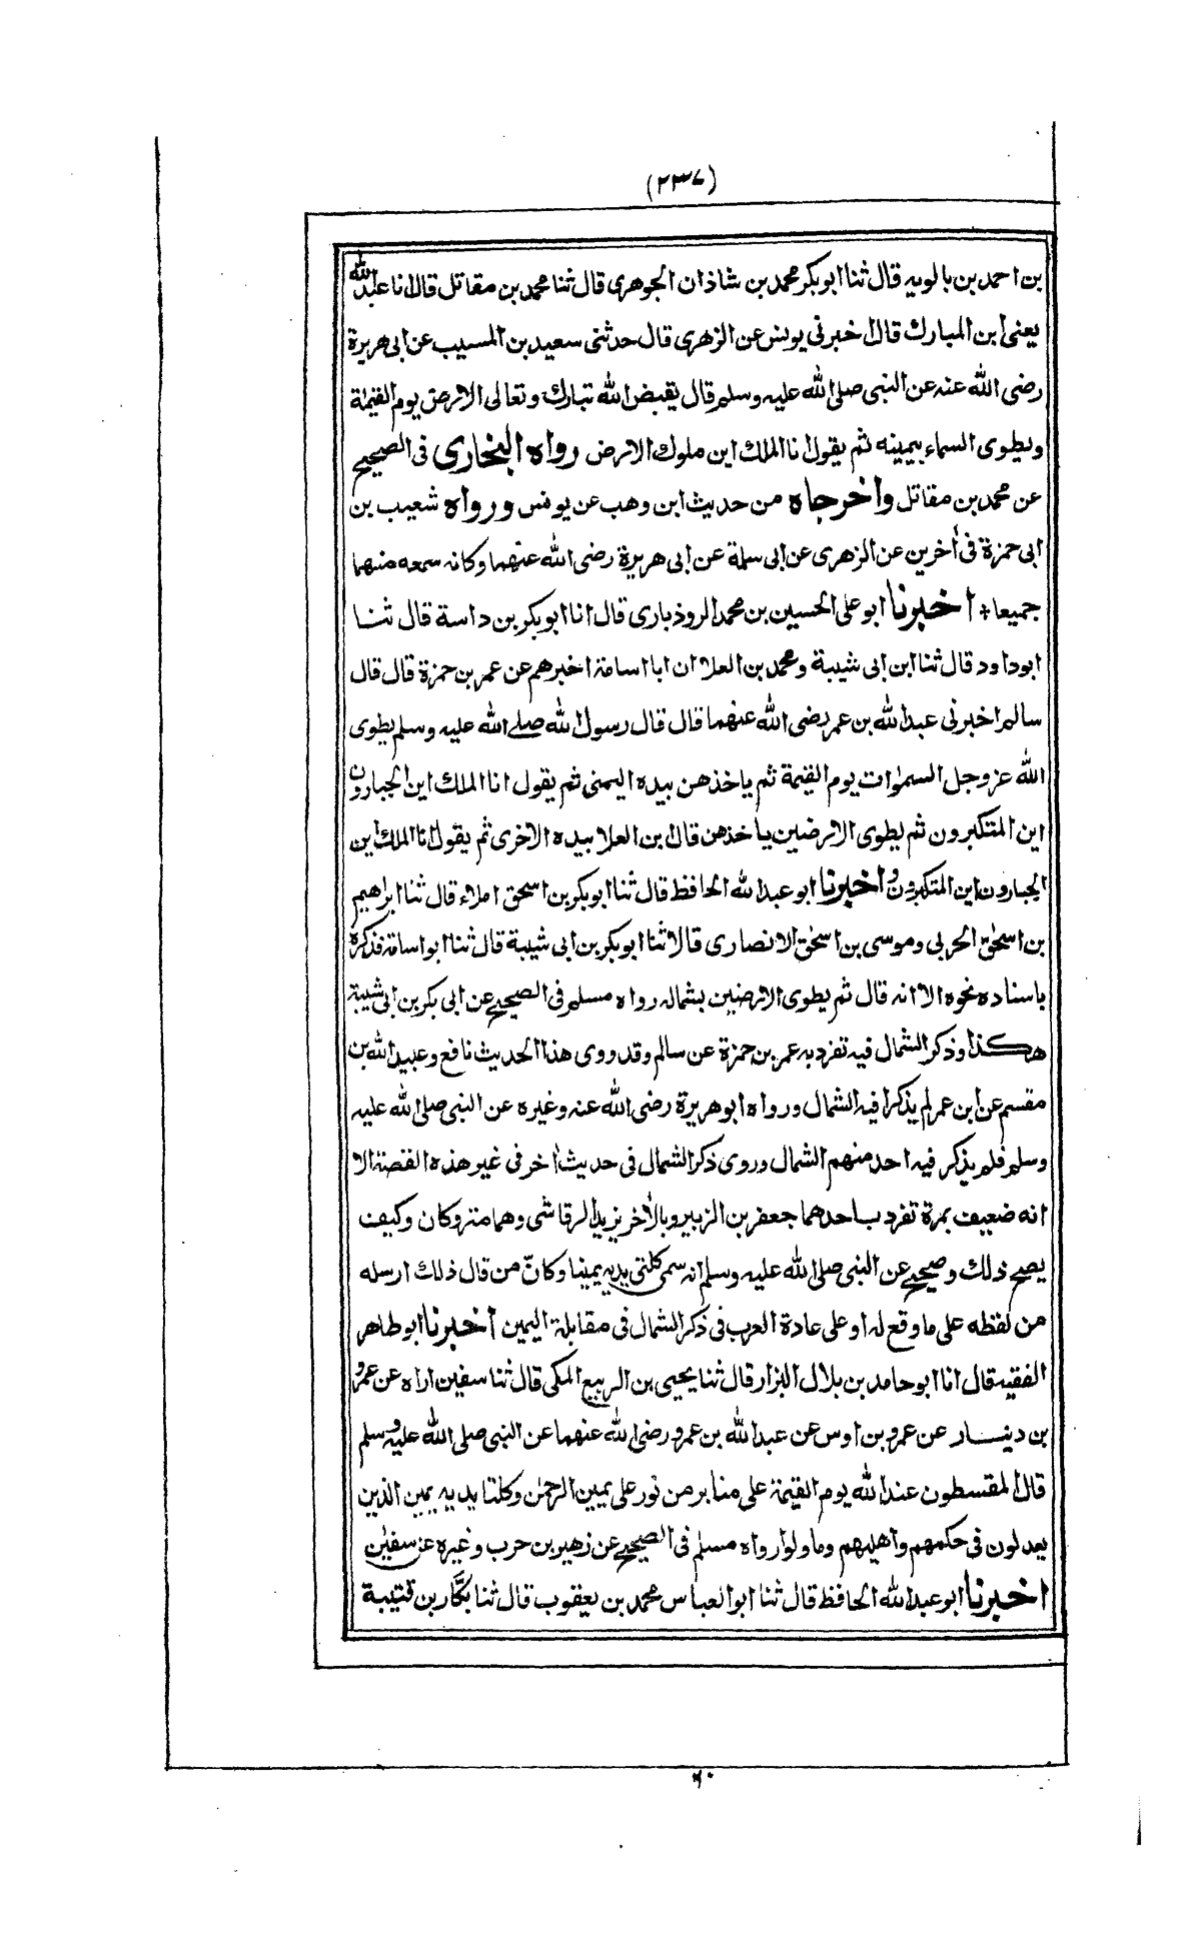 (٢٣٧)
بن احمد بن بالويه قال ثنا ابوبكر محمد بن شاذان الجوهرى قال ثنا محمد بن مقاتل قال انا عبدالله
يعنى ابن المبارك قال اخبرنى يونس عن الزهرى قال حدثنى سعيد بن المسيب عن ابى هريرة
رضى الله عنه عن النبى صلى الله عليه وسلم قال يقبض الله تبارك وتعالى الارض يوم القيمة
ويطوى السماء بيمينه ثم يقول انا الملك اين ملوك الارض رواه البخارى فى الصحيح
عن محمد بن مقاتل واخرجاه من حديث ابن وهب عن يونس ورواه شعيب بن
ابى حمزة فى أخرين عن الزهرى عن ابى سلمة عن ابى هريرة رضى الله عنهما وكانه سمعه منهما
جميعا* اخبرنا ابو على الحسين بن محمد الروذبارى قال انا ابوبكر بن داسة قال ثنا
ابوداود قال ثنا ابن ابى شيبة ومحمد بن العلا ان ابا اسامة اخبرهم عن عمر بن حمزة قال قال
سالم اخبرنى عبدالله بن عمر رضى الله عنهما قال قال رسول الله صلے الله عليه وسلم يطوى
الله عزوجل السمٰوات يوم القيمة ثم ياخذهن بيده اليمنى ثم يقول انا الملك اين الجبارون
اين المتكبرون ثم يطوى الارضين يأخذهن قال ابن العلا بيده الاخرى ثم يقول انا الملك اين
الجبارون اين المتكبرون و اخبرنا ابو عبدالله الحافظ قال ثنا ابوبكر بن اسحق املاء قال ثنا ابراهيم
بن اسحٰق الحربى وموسى بن اسحٰق الانصارى قالا ثنا ابوبكر بن ابى شيبة قال ثنا ابواسامة فذكره
باسناده نحوه الا انه قال ثم يطوى الارضين بشماله رواه مسلم فى الصحيح عن ابى بكر بن ابى شيبة
هكذا وذكر الشمال فيه تفرد به عمر بن حمزة عن سالم وقد روى هذا الحديث نافع وعبيد الله بن
مقسم عن ابن عمر لم يذكرا فيه الشمال ورواه ابوهريرة رضى الله عنه وغيره عن النبى صلى الله عليه
وسلم فلم يذكر فيه احد منهم الشمال وروى ذكر الشمال فى حديث أخر فى غير هذه القصة الا
انه ضعيف بمرة تفرد باحدهما جعفر بن الزبير وبالأخر يزيد الرقاشى وهما متروكان وكيف
يصح ذلك وصحيح عن النبى صلى الله عليه وسلم انه سمى كلتى يديه يمينا وكانّ من قال ذلك ارسله
من لفظه على ما وقع له او على عادة العرب فى ذكر الشمال فى مقابلة اليمين اخبرنا ابو طاهر
الفقيه قال انا ابو حامد بن بلال البزار قال ثنا يحيى بن الربيع المكى قال ثنا سفين اراه عن عمرو
بن دينار عن عمرو بن اوس عن عبدالله بن عمرو رضى الله عنهما عن النبى صلى الله عليه وسلم
قال المقسطون عند الله يوم القيمة على منابر من نور على يمين الرحمٰن وكلتا يديه يمين الذين
يعدلون فى حكمهم واهليهم وما ولوا رواه مسلم فى الصحيح عن زهير بن حرب وغيره عن سفيٰن
اخبرنا ابو عبدالله الحافظ قال ثنا ابو العباس محمد بن يعقوب قال ثنا بكّار بن قتيبة